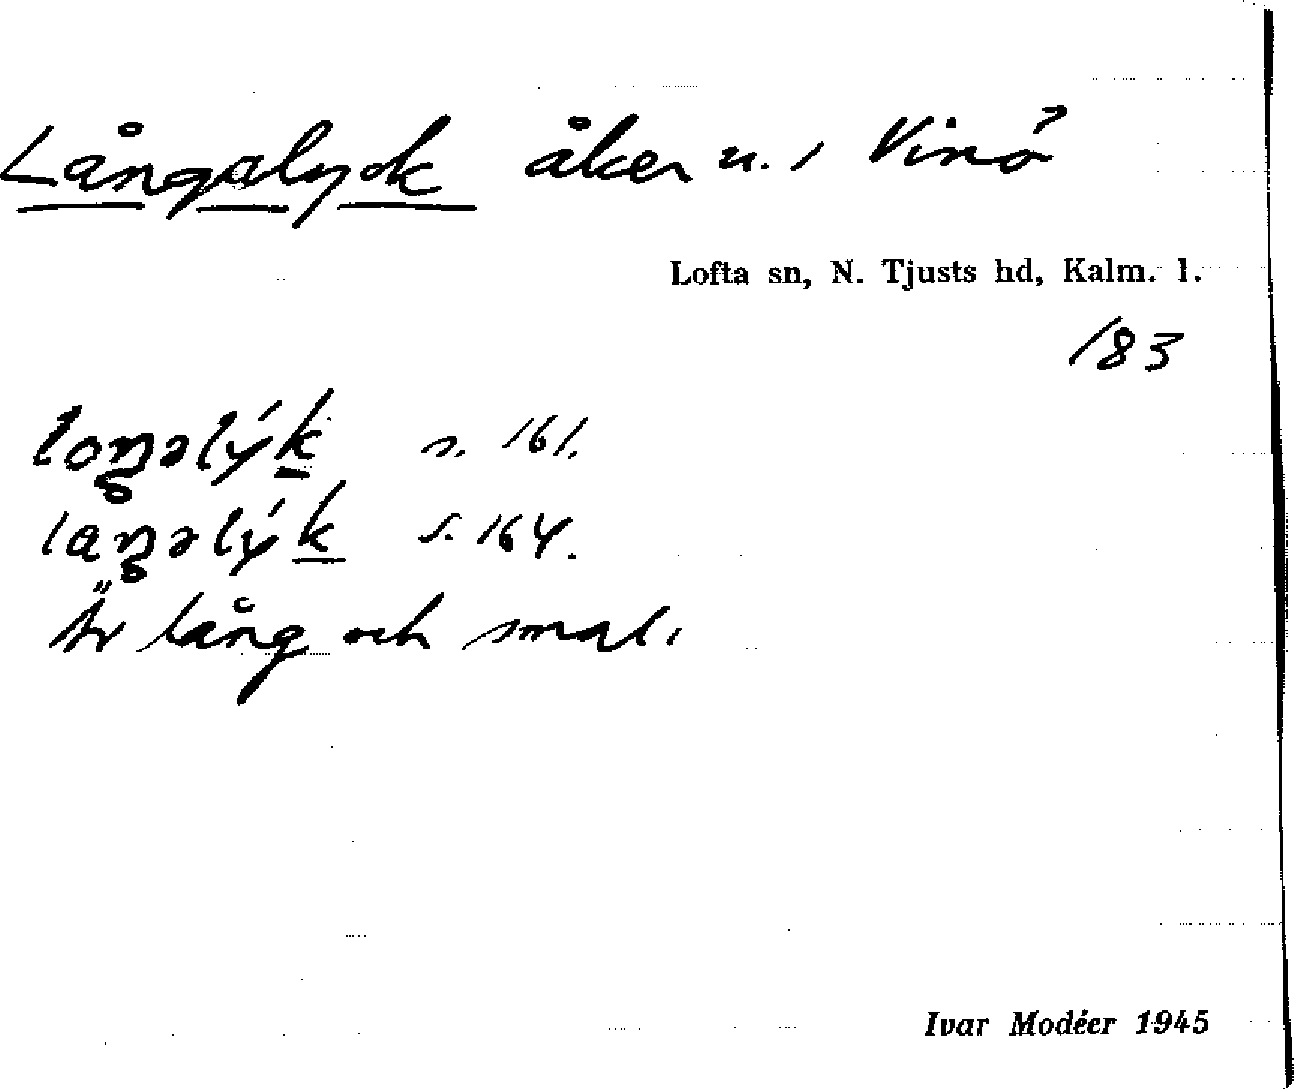 Långalyck åker u. / Vinö
Lofta sn, N. Tjusts hd, Kalm. l.
183
loŋəlýk s. 161.
laŋəlýk s. 164.
Är lång och smal.
Ivar Modéer 1945